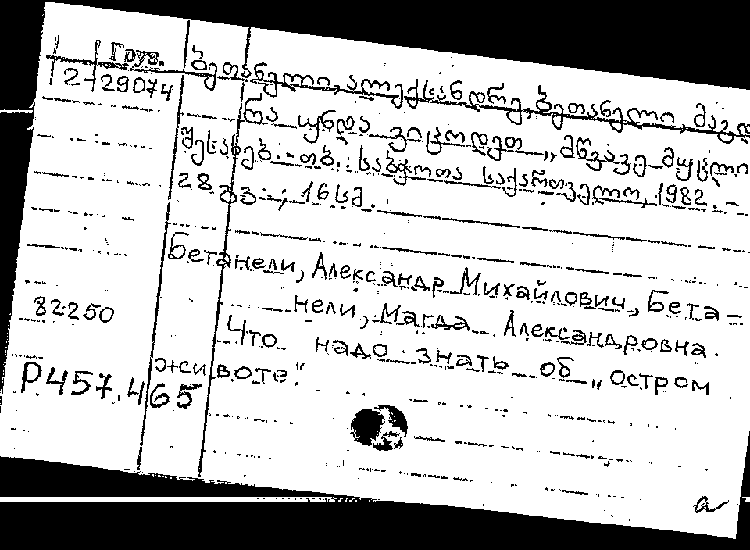 Груз.
12-29074
ბეთანელი, ალექსანდრე, ბეთანელი, მაგდ
რა უნდა ვიცოდეთ „მწვავე მუცლი
შესახებ. - თბ. საბჭოთა საქართველო, 1982. -
28 გვ.; 16 სმ.
Бетанели, Александр Михайлович, Бета=
нели, Магда Александровна.
82250
Что надо знать об „остром
животе".
Р457.465
а